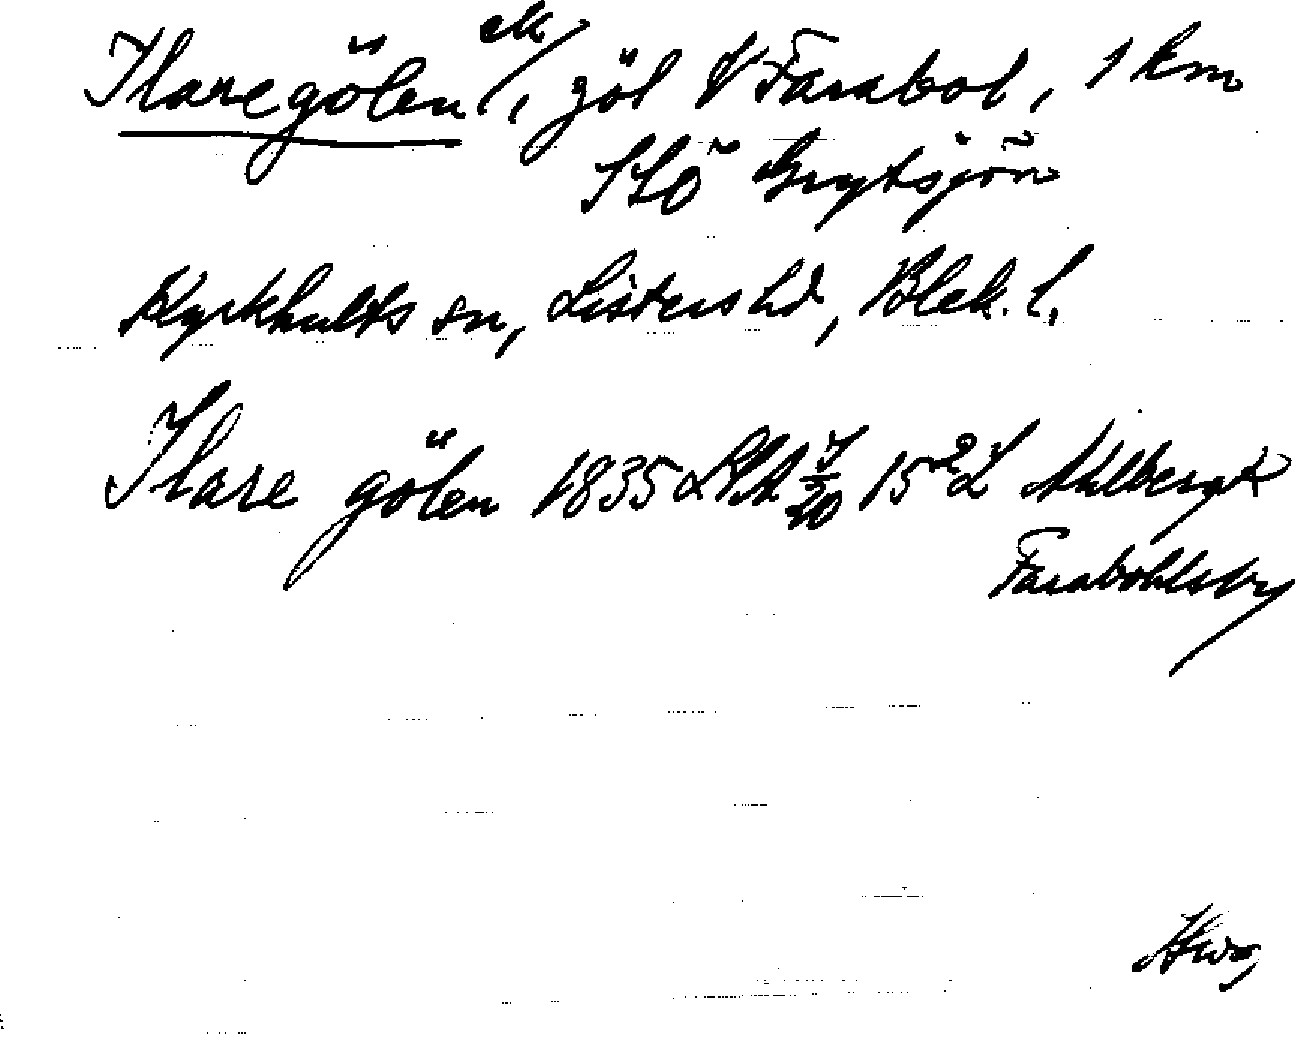 Ilaregölen ek/, göl i Farabol, 1 km
SSÖ Grytsjön
Kyrkhults sn, Listers hd, Blek. l.
Ilare gölen 1835 LSA 15 2 L Ahlberg
Farabohlsby